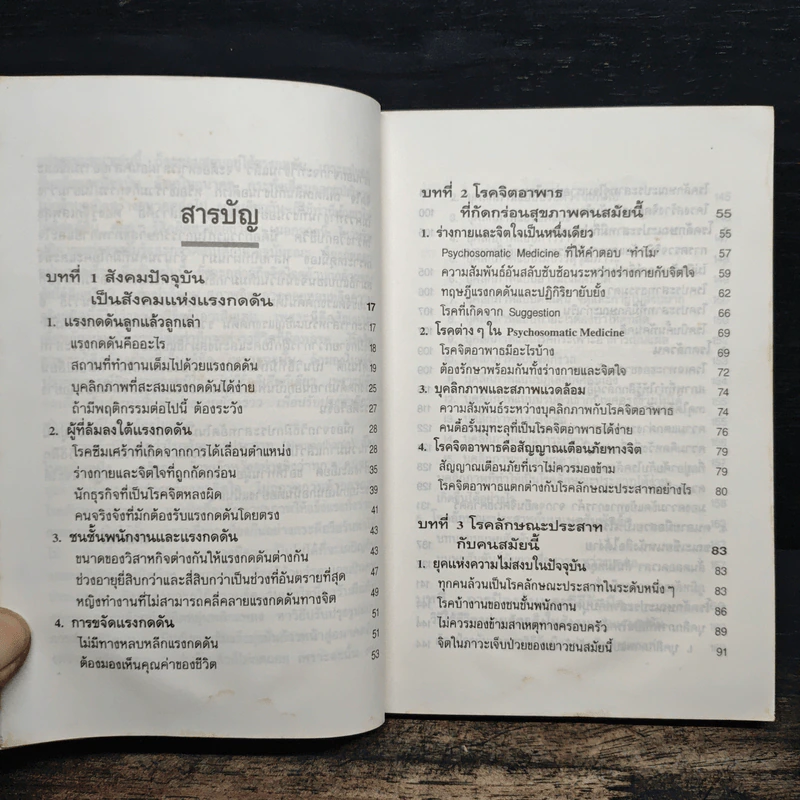 สารบัญ
บทที่ 1 สังคมปัจจุบัน
เป็นสังคมแห่งแรงกดดัน 17
1. แรงกดดันลูกแล้วลูกเล่า 17
แรงกดดันคืออะไร 18
สถานที่ทำงานเต็มไปด้วยแรงกดดัน 19
บุคลิกภาพที่สะสมแรงกดดันได้ง่าย 25
ถ้ามีพฤติกรรมต่อไปนี้ ต้องระวัง 27
2. ผู้ที่ล้มลงใต้แรงกดดัน 28
โรคซึมเศร้าที่เกิดจากการได้เลื่อนตำแหน่ง 28
ร่างกายและจิตใจที่ถูกกัดกร่อน 35
นักธุรกิจที่เป็นโรคจิตหลงผิด 39
คนจริงจังที่มักต้องรับแรงกดดันโดยตรง 41
3. ชนชั้นพนักงานและแรงกดดัน 43
ขนาดของวิสาหกิจต่างกันให้แรงกดดันต่างกัน 43
ช่วงอายุยี่สิบกว่าและสี่สิบกว่าเป็นช่วงที่อันตรายที่สุด 47
หญิงทำงานที่ไม่สามารถคลี่คลายแรงกดดันทางจิต 49
4. การขจัดแรงกดดัน 51
ไม่มีทางหลบหลีกแรงกดดัน 51
ต้องมองเห็นคุณค่าของชีวิต 53
บทที่ 2 โรคจิตอาพาธ
ที่กัดกร่อนสุขภาพคนสมัยนี้ 55
1. ร่างกายและจิตใจเป็นหนึ่งเดียว 55
Psychosomatic Medicine ที่ให้คำตอบ 'ทำไม' 57
ความสัมพันธ์อันสลับซับซ้อนระหว่างร่างกายกับจิตใจ 59
ทฤษฎีแรงกดดันและปฏิกิริยายับยั้ง 62
โรคที่เกิดจาก Suggestion 66
2. โรคต่าง ๆ ใน Psychosomatic Medicine 69
โรคจิตอาพาธมีอะไรบ้าง 69
ต้องรักษาพร้อมกันทั้งร่างกายและจิตใจ 72
3. บุคลิกภาพและสภาพแวดล้อม 74
ความสัมพันธ์ระหว่างบุคลิกภาพกับโรคจิตอาพาธ 74
คนดื้อรั้นมุทะลุที่เป็นโรคจิตอาพาธได้ง่าย 76
4. โรคจิตอาพาธคือสัญญาณเตือนภัยทางจิต 79
สัญญาณเตือนภัยที่เราไม่ควรมองข้าม 79
โรคจิตอาพาธแตกต่างกับโรคลักษณะประสาทอย่างไร 80
บทที่ 3 โรคลักษณะประสาท
กับคนสมัยนี้ 83
1. ยุคแห่งความไม่สงบในปัจจุบัน 83
ทุกคนล้วนเป็นโรคลักษณะประสาทในระดับหนึ่ง ๆ 83
โรคบ้างานของชนชั้นพนักงาน 86
ไม่ควรมองข้ามสาเหตุทางครอบครัว 89
จิตในภาวะเจ็บป่วยของเยาวชนสมัยนี้ 91